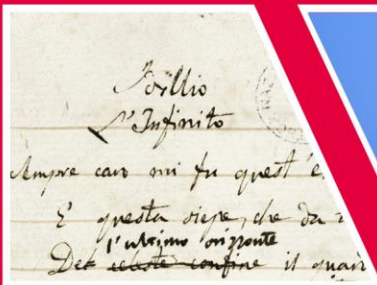 Idillio
L'Infinito
Sempre caro mi fu quest'e
E questa siepe, che da
l'ultimo orizzonte
Del celeste confine il guar